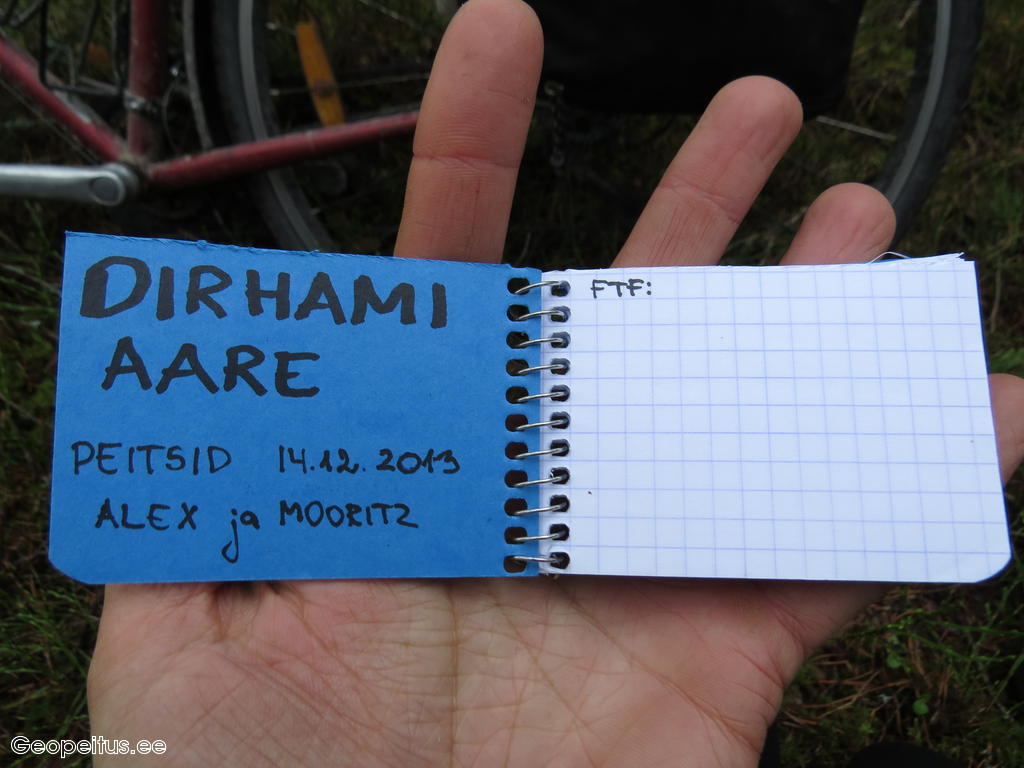 DIRHAMI
AARE
PEITSID 14.12.2013
ALEX ja MOORITZ
FTF:
Geopeitus.ee